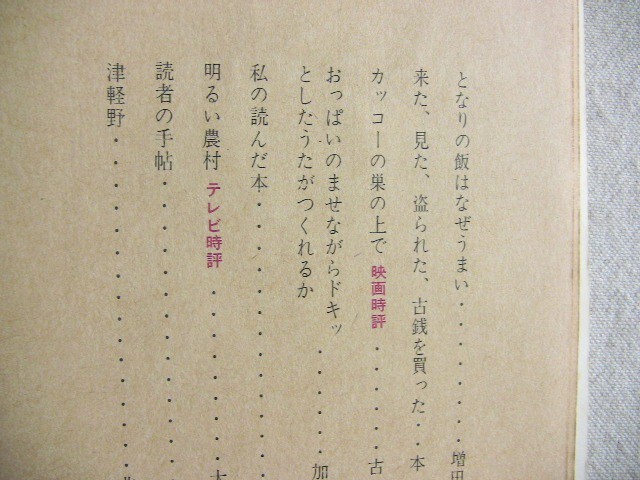 となりの飯はなぜうまい・・・・・・・・増田
来た、見た、盗られた、古銭を買った・・本
カッコーの巣の上で 映画時評・・・・・・古
おっぱいのませながらドキッ
としたうたがつくれるか・・・・・・加
私の読んだ本・・・・・・・・・・・・・
明るい農村 テレビ時評・・・・・・・・大
読者の手帖・・・・・・・・・・・・・・
津軽野・・・・・・・・・・・・・・・・